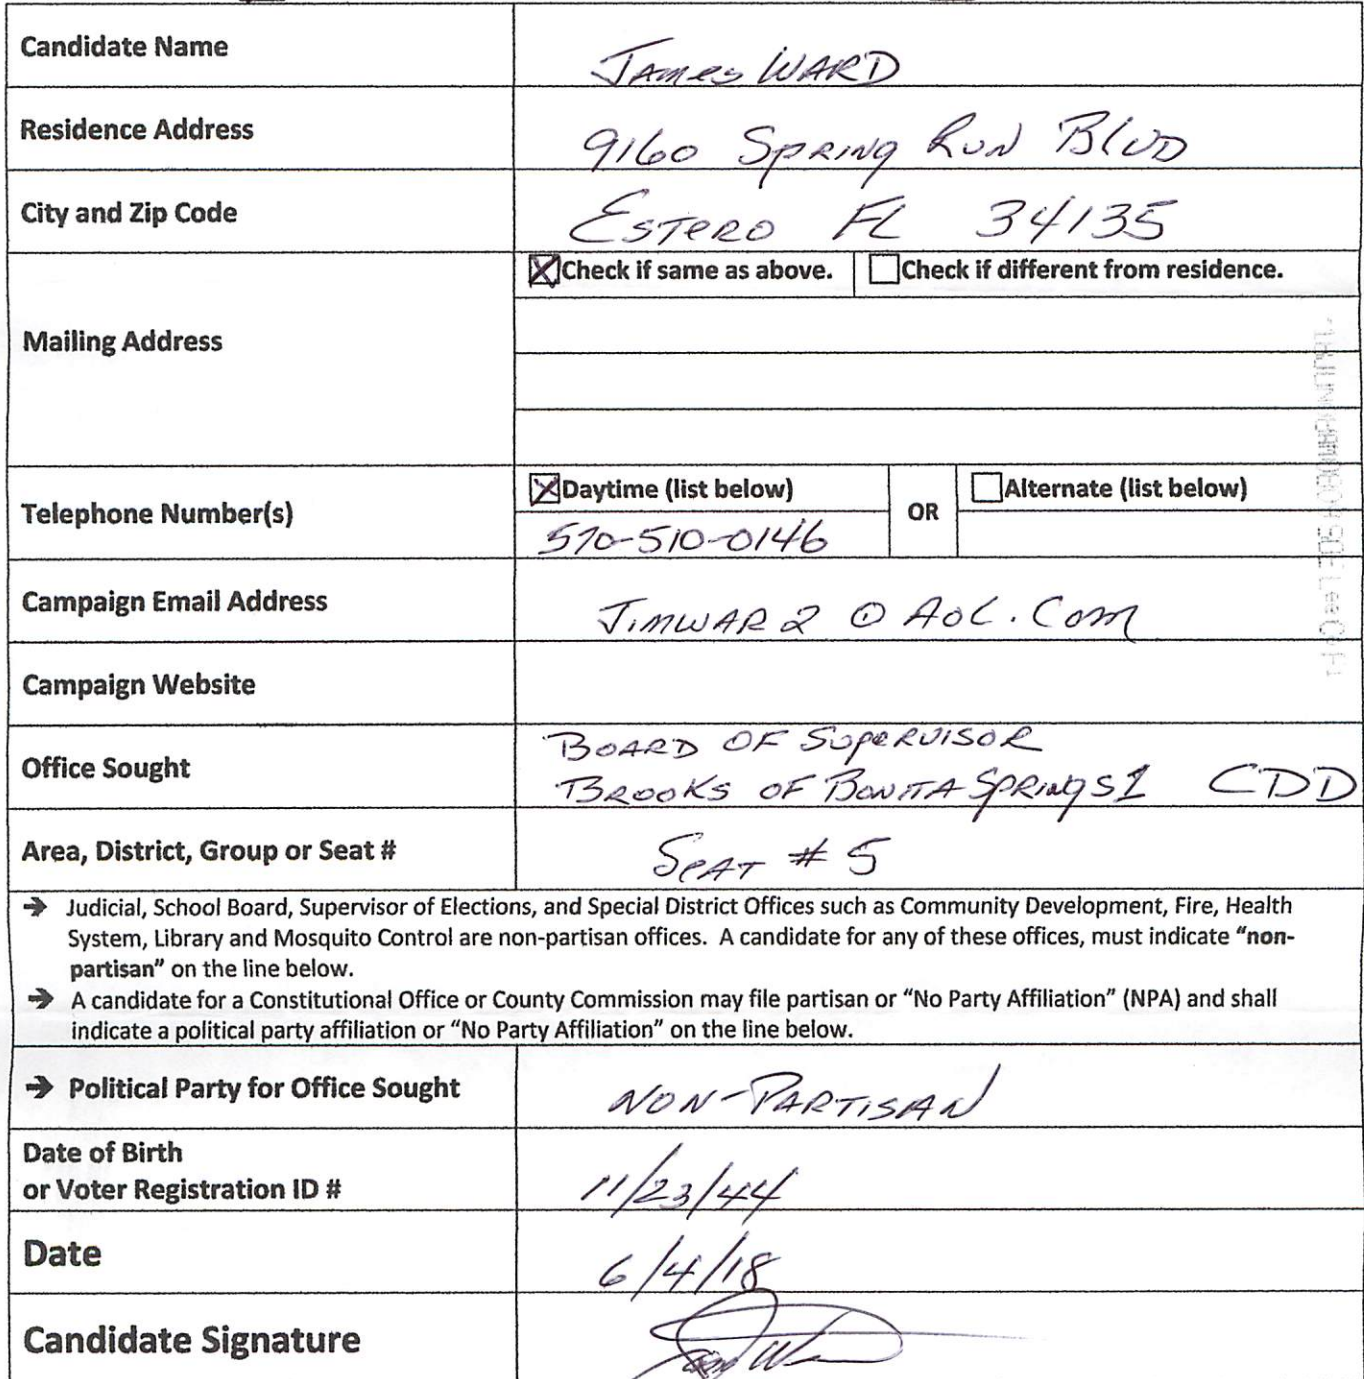 Candidate Name
James WARD
Residence Address
9160 Spring Run Blvd
City and Zip Code
Estero FL 34135
Mailing Address
Check if same as above. Check if different from residence.
Telephone Number(s)
Daytime (list below) OR Alternate (list below)
570-510-0146
Campaign Email Address
Jimwar2@AOL.Com
Campaign Website
Office Sought
Board of Supervisor
Brooks of Bonita Springs 1 CDD
Area, District, Group or Seat #
Seat # 5
→ Judicial, School Board, Supervisor of Elections, and Special District Offices such as Community Development, Fire, Health
System, Library and Mosquito Control are non-partisan offices. A candidate for any of these offices, must indicate "non-
partisan" on the line below.
→ A candidate for a Constitutional Office or County Commission may file partisan or "No Party Affiliation" (NPA) and shall
indicate a political party affiliation or "No Party Affiliation" on the line below.
→ Political Party for Office Sought
NON-PARTISAN
Date of Birth
or Voter Registration ID #
11/23/44
Date
6/4/18
Candidate Signature